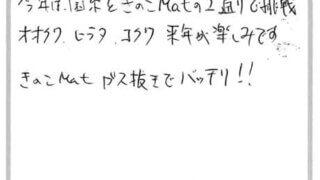 今年は、国産ときのこMatの2通りで挑戦
オオクワ、ヒラタ、コクワ 来年が楽しみです
きのこMat ガス抜きでバッチリ!!